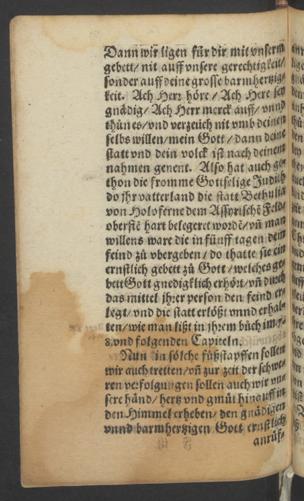 Dann wir ligen für dir mit vnserm
gebett/ nit auff vnsere gerechtigkeit/
sonder auff deine grosse barmhertzig-
keit. Ach Herr höre/ Ach Herr bey
gnädig/ Ach Herr merck auff/ vnnd
thün es/ vnd verzeüch nit vmb deinen
selbs willen/ mein Gott/ dann deine
statt vnd dein volck ist nach deinem
nahmen genent. Also hat auch ge-
thon die fromme Gottselige Judith
do jhr vatterland die statt Bethulia
von Holoferne dem Assyrischē Feld-
oberstē hart belegeret wordē/ vñ man
willens ware die in fünff tagen dem
feind zů vbergeben/ do thatte sie ein
ernstlich gebett zů Gott/ welches ge-
bett Gott gnedigklich erhört/ vñ durch
das mittel jhrer person den feind er-
legt/ vnd die statt erlößt vnnd erhal-
ten/ wie man lißt in jhrem büch im
8. vnd folgenden Capiteln.
Nun in sölche fůßstapffen sollen
wir auch tretten/ vñ zur zeit der schwe-
ren verfolgungen sollen auch wir vn-
sere händ/ hertz vnd gmüt hinauff in
den Himmel erheben/ den gnädigen
vnnd barmhertzigen Gott ernstlich
anrůf-